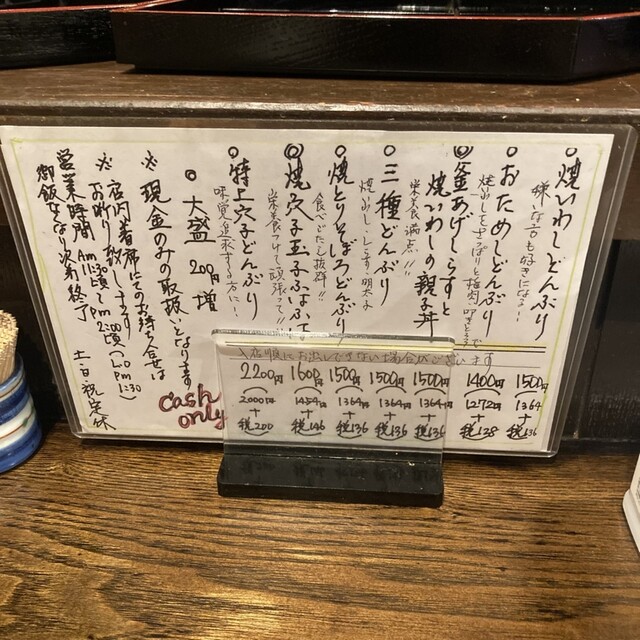 焼いわしどんぶり
嫌な方も好きになる…
1500円
(1364+税136)
おためしどんぶり
1400円
(1272円+税128)
釜あげしらすと
焼いわしの親子丼
栄養満点!!
1500円
(1364円+税136)
三種どんぶり
1500円
(1364円+税136)
焼とりそぼろどんぶり
食べごたえ抜群!!
1500円
(1364円+税136)
焼穴子玉子ふわふわ
栄養つけて頑張って!!
1600円
(1454円+税146)
特上穴子どんぶり
味覚追求する方に…
2200円
(2000円+税200)
大盛 200円増
現金のみの取扱いとなります
cash only
※店内着席にてのお待ち合せは
お断り致します
営業時間 Am11:30頃〜Pm2:00頃(L.O Pm1:30
御飯なくなり次第終了
土日祝定休